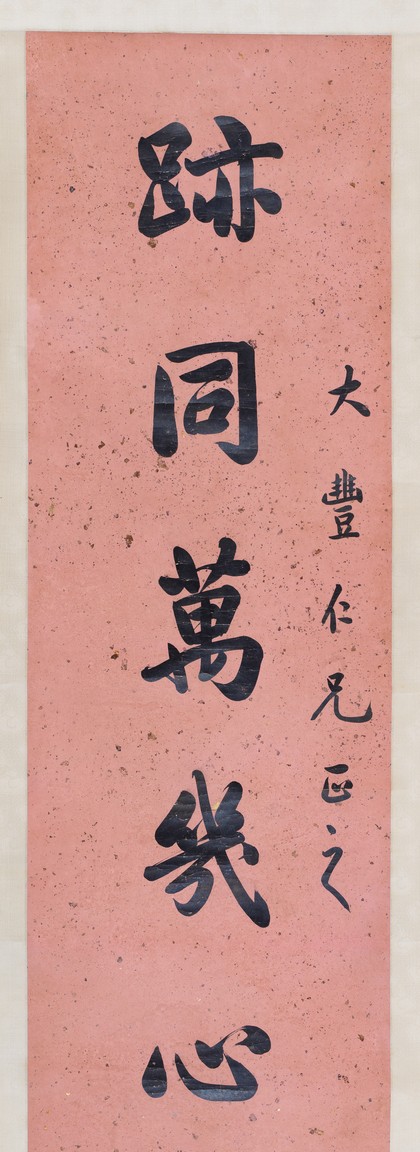 大豐仁兄正之
跡同萬幾心